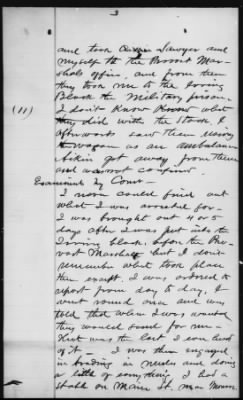 3
and took Sawyer and
myself to the Provost Mar-
shals office, and from there
they took me to the Irving
Block the Military prison.
I don't know Know what
(11) they did with the Stock, I
afterwards saw them using
wagon as an ambulance
Aikin got away from them
and was not confined
Examined by Court -
I never could find out
what I was arrested for -
I was brought out 4 or 5
days after I was put into the
Irving block, before the Pro-
vost Marshall but I don't
remember what took place
then exactly. I was ordered to
report from day to day, I
went round once and was
told that when I was wanted
they would send for me -
that was the last I ever heard
of it - I was then engaged
in trading in mules and doing
a little of everything I had a
stable on Main St, near